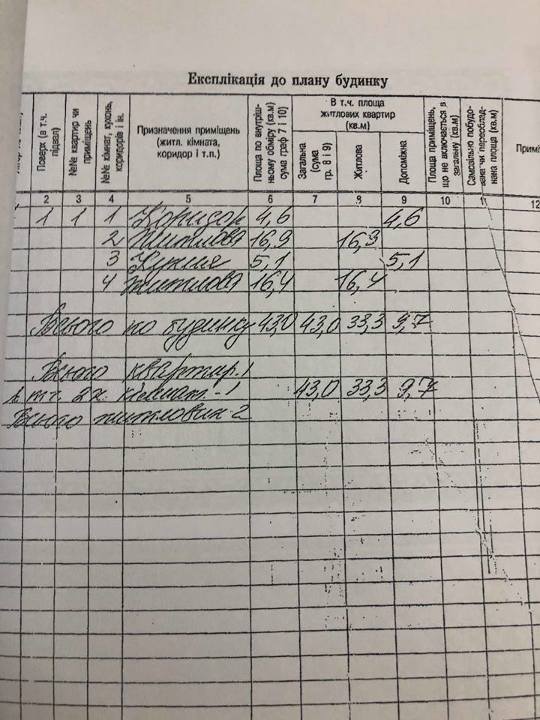 Експлікація до плану будинку
Поверх (в т.ч. підвал)
№№ квартир чи приміщень
№№ кімнат, кухонь, коридорів і ін.
Призначення приміщень (житл. кімната, коридор і т.п.)
Площа по внутрішньому обміру (кв.м) сума граф 7 і 10)
В т.ч. площа житлових квартир (кв.м)
Загальна (сума гр. 8 і 9)
Житлова
Допоміжна
Площа приміщень, що не включається в загальну (кв.м)
Самовільно побудована чи переобладнана площа (кв.м)
2 3 4 5 6 7 8 9 10 11 12
1 1 1 Коридор 4,6 4,6
2 Житлова 16,9 16,9
3 Кухня 5,1 5,1
4 Житлова 16,4 16,4
Всього по будинку 43,0 43,0 33,3 9,7
Всього квартир. 1
в т.ч. 2х кімнат.-1 43,0 33,3 9,7
Всього житлових-2